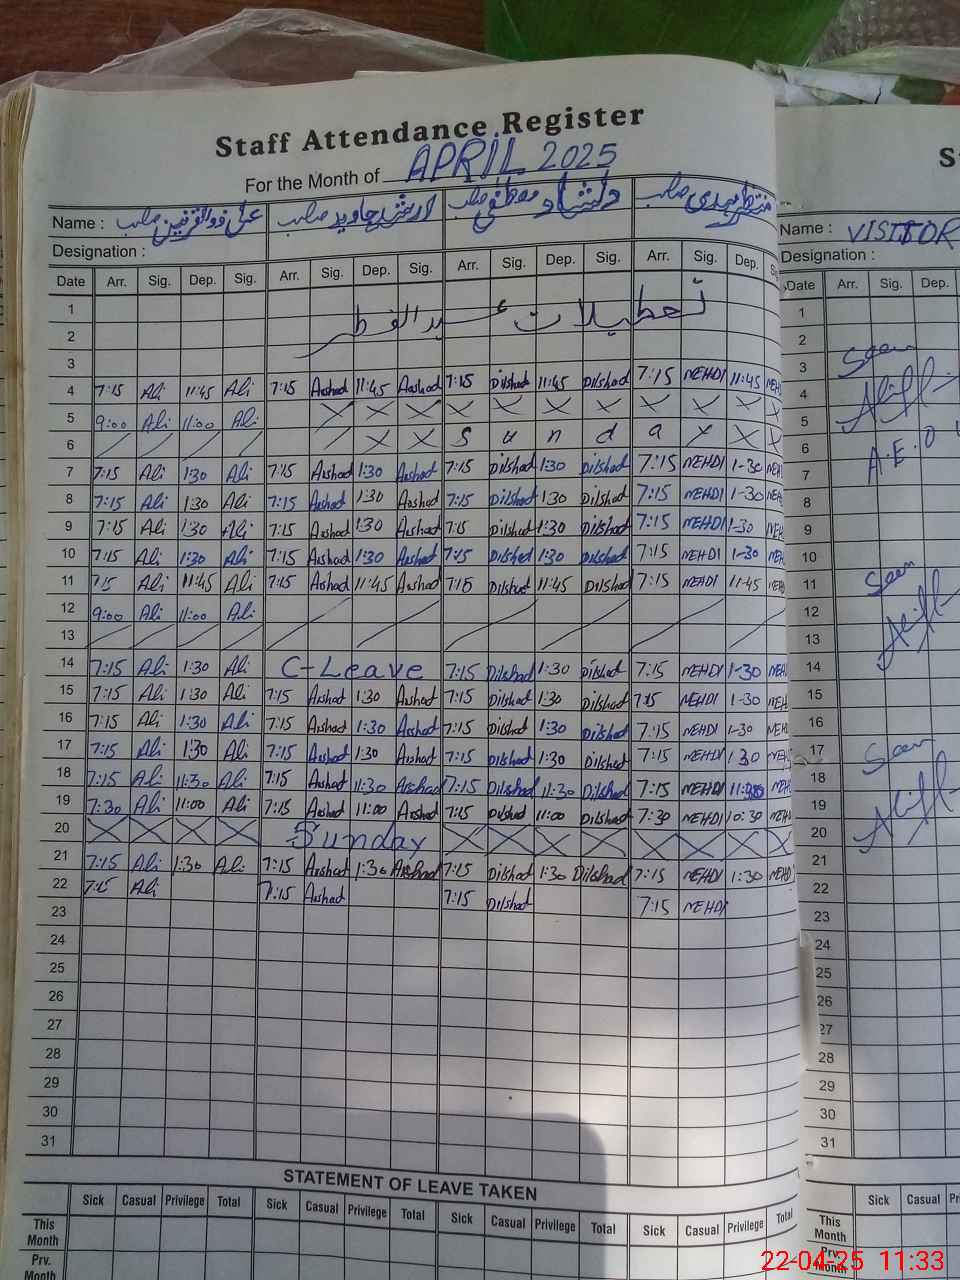 Staff Attendance Register
For the Month of APRIL 2025
Name : علی ذوالقرنین صاحب ارشد جاوید صاحب دلشاد مصطفی صاحب منتظر مہدی صاحب
Designation :
Date Arr. Sig. Dep. Sig. Arr. Sig. Dep. Sig. Arr. Sig. Dep. Sig. Arr. Sig. Dep.
1 تعطیلات عید الفطر
2
3
4 7:15 Ali 11:45 Ali 7:15 Arshad 11:45 Arshad 7:15 Dilshad 11:45 Dilshad 7:15 MEHDI 11:45 MEH
5 9:00 Ali 11:00 Ali
6 S u n d a y
7 7:15 Ali 1:30 Ali 7:15 Arshad 1:30 Arshad 7:15 Dilshad 1:30 Dilshad 7:15 MEHDI 1-30 MEH
8 7:15 Ali 1:30 Ali 7:15 Arshad 1:30 Arshad 7:15 Dilshad 1:30 Dilshad 7:15 MEHDI 1-30 MEH
9 7:15 Ali 1:30 Ali 7:15 Arshad 1:30 Arshad 7:15 Dilshad 1:30 Dilshad 7:15 MEHDI 1-30 MEH
10 7:15 Ali 1:30 Ali 7:15 Arshad 1:30 Arshad 7:15 Dilshad 1:30 Dilshad 7:15 MEHDI 1-30 MEH
11 7:15 Ali 11:45 Ali 7:15 Arshad 11:45 Arshad 7:15 Dilshad 11:45 Dilshad 7:15 MEHDI 11-45 MEH
12 9:00 Ali 11:00 Ali
13
14 7:15 Ali 1:30 Ali C-Leave 7:15 Dilshad 1:30 Dilshad 7:15 MEHDI 1-30 MEH
15 7:15 Ali 1:30 Ali 7:15 Arshad 1:30 Arshad 7:15 Dilshad 1:30 Dilshad 7:15 MEHDI 1-30 MEH
16 7:15 Ali 1:30 Ali 7:15 Arshad 1:30 Arshad 7:15 Dilshad 1:30 Dilshad 7:15 MEHDI 1-30 MEH
17 7:15 Ali 1:30 Ali 7:15 Arshad 1:30 Arshad 7:15 Dilshad 1:30 Dilshad 7:15 MEHDI 1 30 MEH
18 7:15 Ali 11:30 Ali 7:15 Arshad 11:30 Arshad 7:15 Dilshad 11:30 Dilshad 7:15 MEHDI MEH
19 7:30 Ali 11:00 Ali 7:15 Arshad 11:00 Arshad 7:15 Dilshad 11:00 Dilshad 7:30 MEHDI 10:30 MEH
20 Sunday
21 7:15 Ali 1:30 Ali 7:15 Arshad 1:30 Arshad 7:15 Dilshad 1:30 Dilshad 7:15 MEHDI 1:30 MEHD
22 7:15 Ali 7:15 Arshad 7:15 Dilshad 7:15 MEHDI
23
24
25
26
27
28
29
30
31
STATEMENT OF LEAVE TAKEN
Sick Casual Privilege Total Sick Casual Privilege Total Sick Casual Privilege Total Sick Casual Privilege Total
This Month
Prv. Month
Name : VISITOR
Designation :
Date Arr. Sig. Dep.
1
2
3 Seen
4
5
6 A.E.O
7
8
9
10
11 Seen
12
13
14
15
16
17 Seen
18
19
20
21
22
23
24
25
26
27
28
29
30
31
Sick Casual
This Month
Prv. Month
22-04-25 11:33